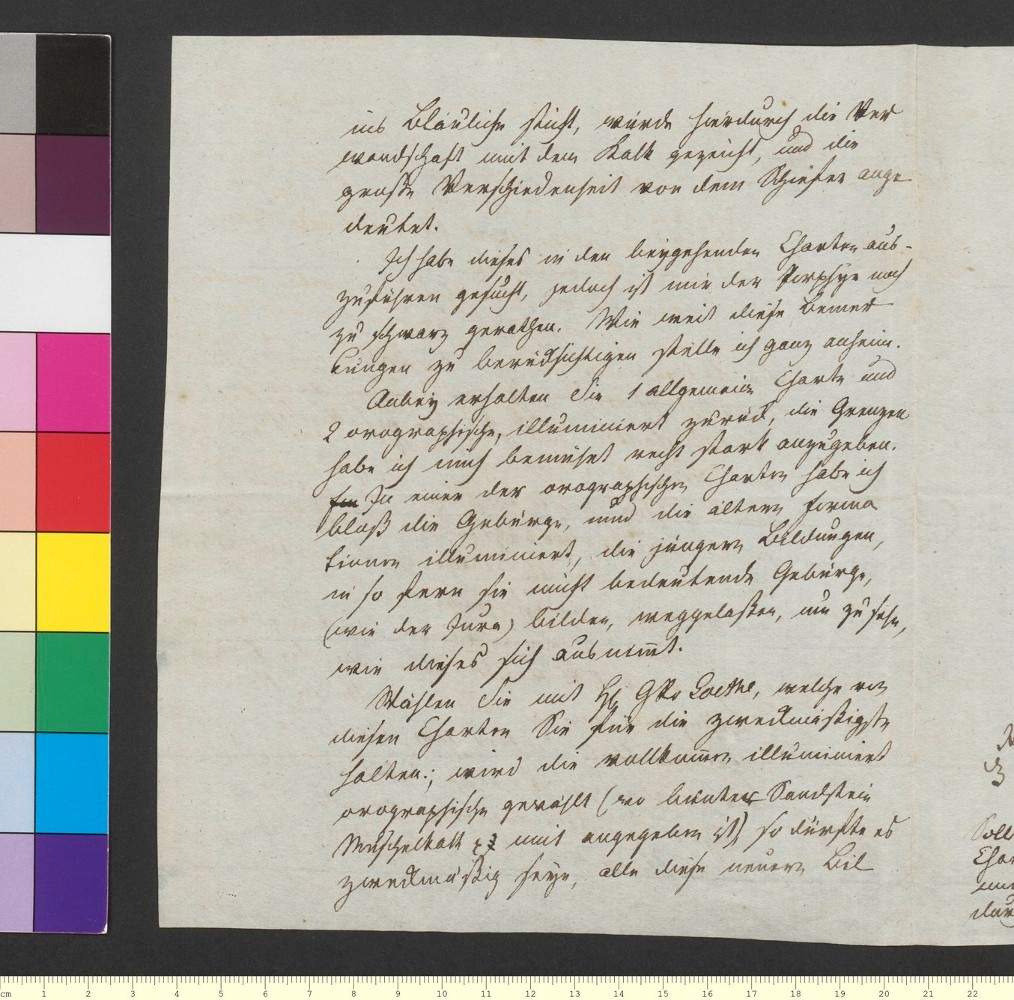 ins Blauliche sticht, würde hierdurch die Ver
wandschaft mit dem Kalk gezeicht, und die
große Verschiedenheit von dem Schiefer ange
deutet.
Ich habe dieses in den beygehenden Charten aus-
zuführen gesucht, jedoch ist mir der Porphyr noch
zu schwarz gerathen. Wie weit diese Bemer
kungen zu berücksichtigen stelle ich ganz anheim.
Anbey erhalten Sie 1 allgemein Charte und
2 orographische, illuminiert zurück, die Grenzen
habe ich mich bemühet recht stark anzugeben.
In einer der orographischen Charten habe ich
bloß die Gebürge, und die ältern Forma
tionen illuminiert, die jüngern Bildungen,
in so fern sie nicht bedeutende Gebürge,
(wie der Jura) bilden, weggelaßen, um zu sehn,
wie dieses sich ausnimt.
Wählen Sie mit H Goethe, welche von
diesen Charten Sie für die zweckmäsigste
halten; wird die vollkomen illuminiert
orographische gewählt (wo bunter Sandstein
Muschelkalk mit angegeben ist) so dürfte es
zweckmäsig seyn, alle diese neuern Bil